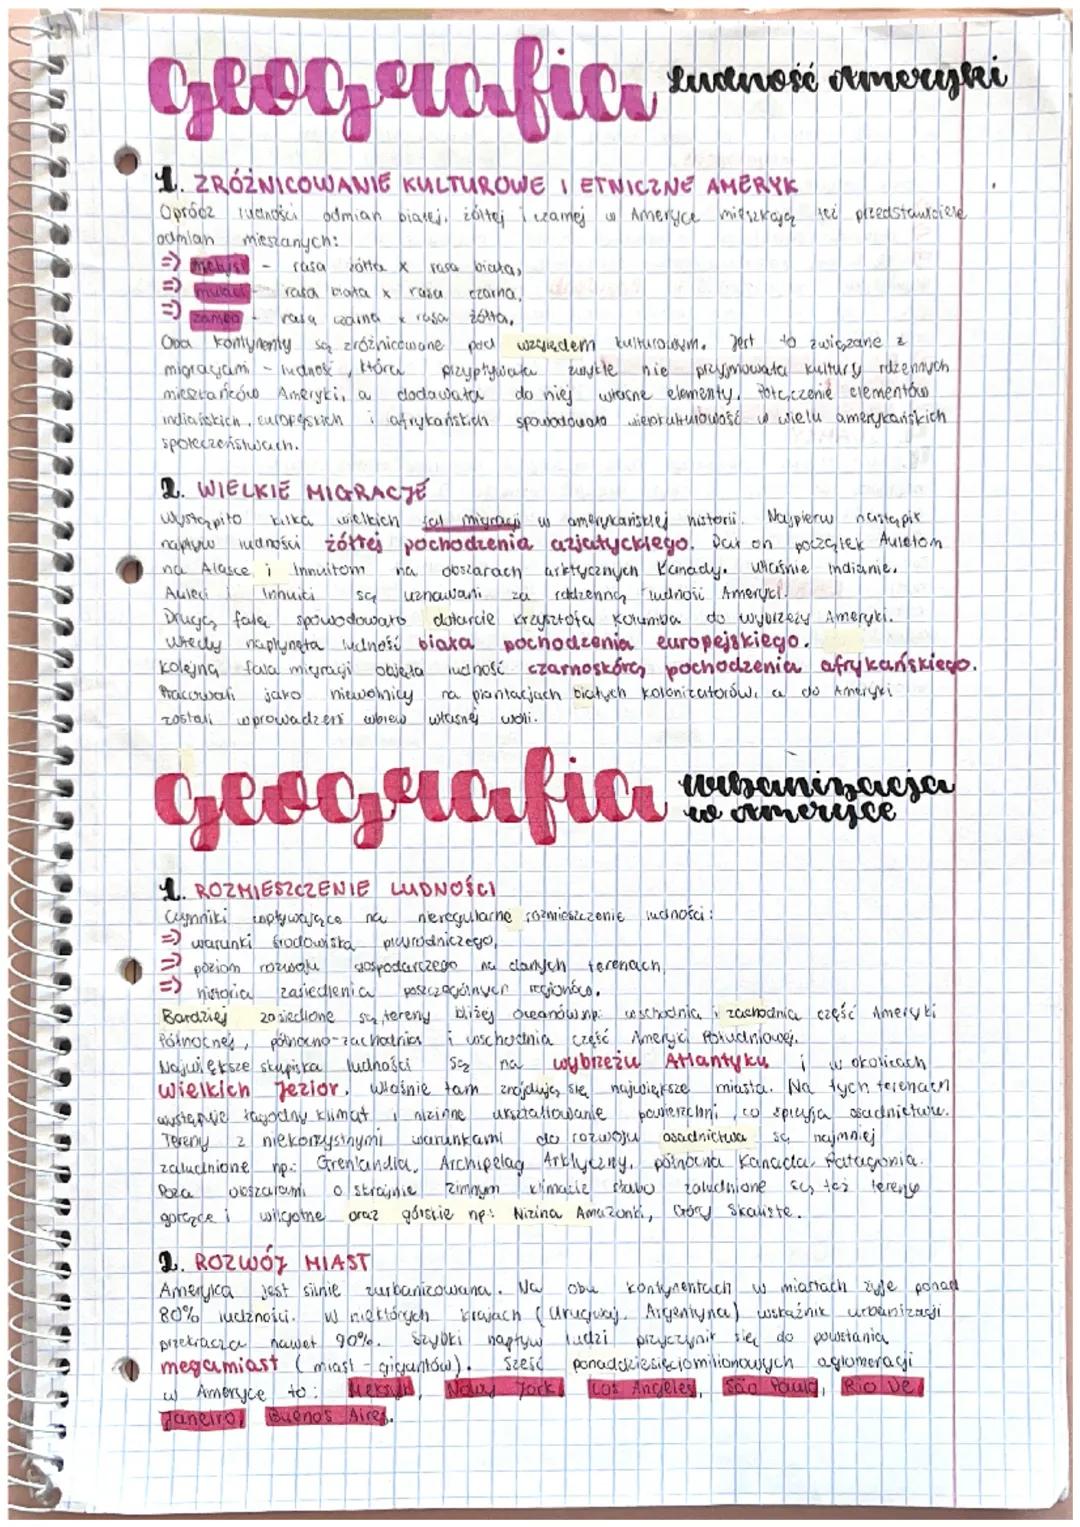 Geografia Ludność Ameryki
1. ZRÓŻNICOWANIE KULTUROWE I ETNICZNE AMERYK
Oprócz ludności odmian białej, żółtej i czarnej w Ameryce mieszkają też przedstawiciele
odmian mieszanych:
=> metysi - rasa żółta x rasa biała,
=> mulaci - rasa biała x rasa czarna,
=> zambo - rasa czarna x rasa żółta.
Oba kontynenty są zróżnicowane pod względem kulturowym. Jest to związane z
migracjami - ludność, która przypływała zwykle nie przyjmowała kultury rdzennych
mieszkańców Ameryki, a dodawała do niej własne elementy. Połączenie elementów
indiańskich, europejskich i afrykańskich spowodowało wielokulturowość w wielu amerykańskich
społeczeństwach.
2. WIELKIE MIGRACJE
Wystąpiło kilka wielkich fal migracji w amerykańskiej historii. Najpierw nastąpił
napływ ludności żółtej pochodzenia azjatyckiego. Dał on początek Aleutom
na Alasce i Innuitom na obszarach arktycznych Kanady. Właśnie Indianie,
Aleuci i Innuici są uznawani za rdzenną ludność Ameryki.
Drugą falę spowodowało dotarcie Krzysztofa Kolumba do wybrzeży Ameryki.
Wtedy napłynęła ludność biała pochodzenia europejskiego.
Kolejna fala migracji objęła ludność czarnoskórą pochodzenia afrykańskiego.
Pracowali jako niewolnicy na plantacjach białych kolonizatorów, a do Ameryki
zostali wprowadzeni wbrew własnej woli.
Geografia urbanizacja
w Ameryce
1. ROZMIESZCZENIE LUDNOŚCI
Czynniki wpływające na nieregularne rozmieszczenie ludności:
=> warunki środowiska przyrodniczego,
=> poziom rozwoju gospodarczego na danych terenach,
=> historia zasiedlenia poszczególnych regionów.
Bardziej zasiedlone są tereny bliżej oceanów np: wschodnia i zachodnia część Ameryki
Północnej, północno-zachodnia i wschodnia część Ameryki Południowej.
Największe skupiska ludności są na wybrzeżu Atlantyku i w okolicach
Wielkich Jezior. Właśnie tam znajdują się największe miasta. Na tych terenach
występuje łagodny klimat i nizinne ukształtowanie powierzchni, co sprzyja osadnictwu.
Tereny z niekorzystnymi warunkami do rozwoju osadnictwa są najmniej
zaludnione np.: Grenlandia, Archipelag Arktyczny, północna Kanada, Patagonia.
Poza obszarami o skrajnie zimnym klimacie słabo zaludnione są też tereny
gorące i wilgotne oraz górskie np: Nizina Amazonki, Góry Skaliste.
2. ROZWÓJ MIAST
Ameryka jest silnie zurbanizowana. Na obu kontynentach w miastach żyje ponad
80% ludzności. W niektórych krajach (Urugwaj, Argentyna) wskaźnik urbanizacji
przekracza nawet 90%. Szybki napływ ludzi przyczynił się do powstania
megamiast (miast - gigantów). Sześć ponaddziesięciomilionowych aglomeracji
w Ameryce to: Meksyk, Nowy Jork, Los Angeles, São Paulo, Rio De
Janeiro, Buenos Aires.